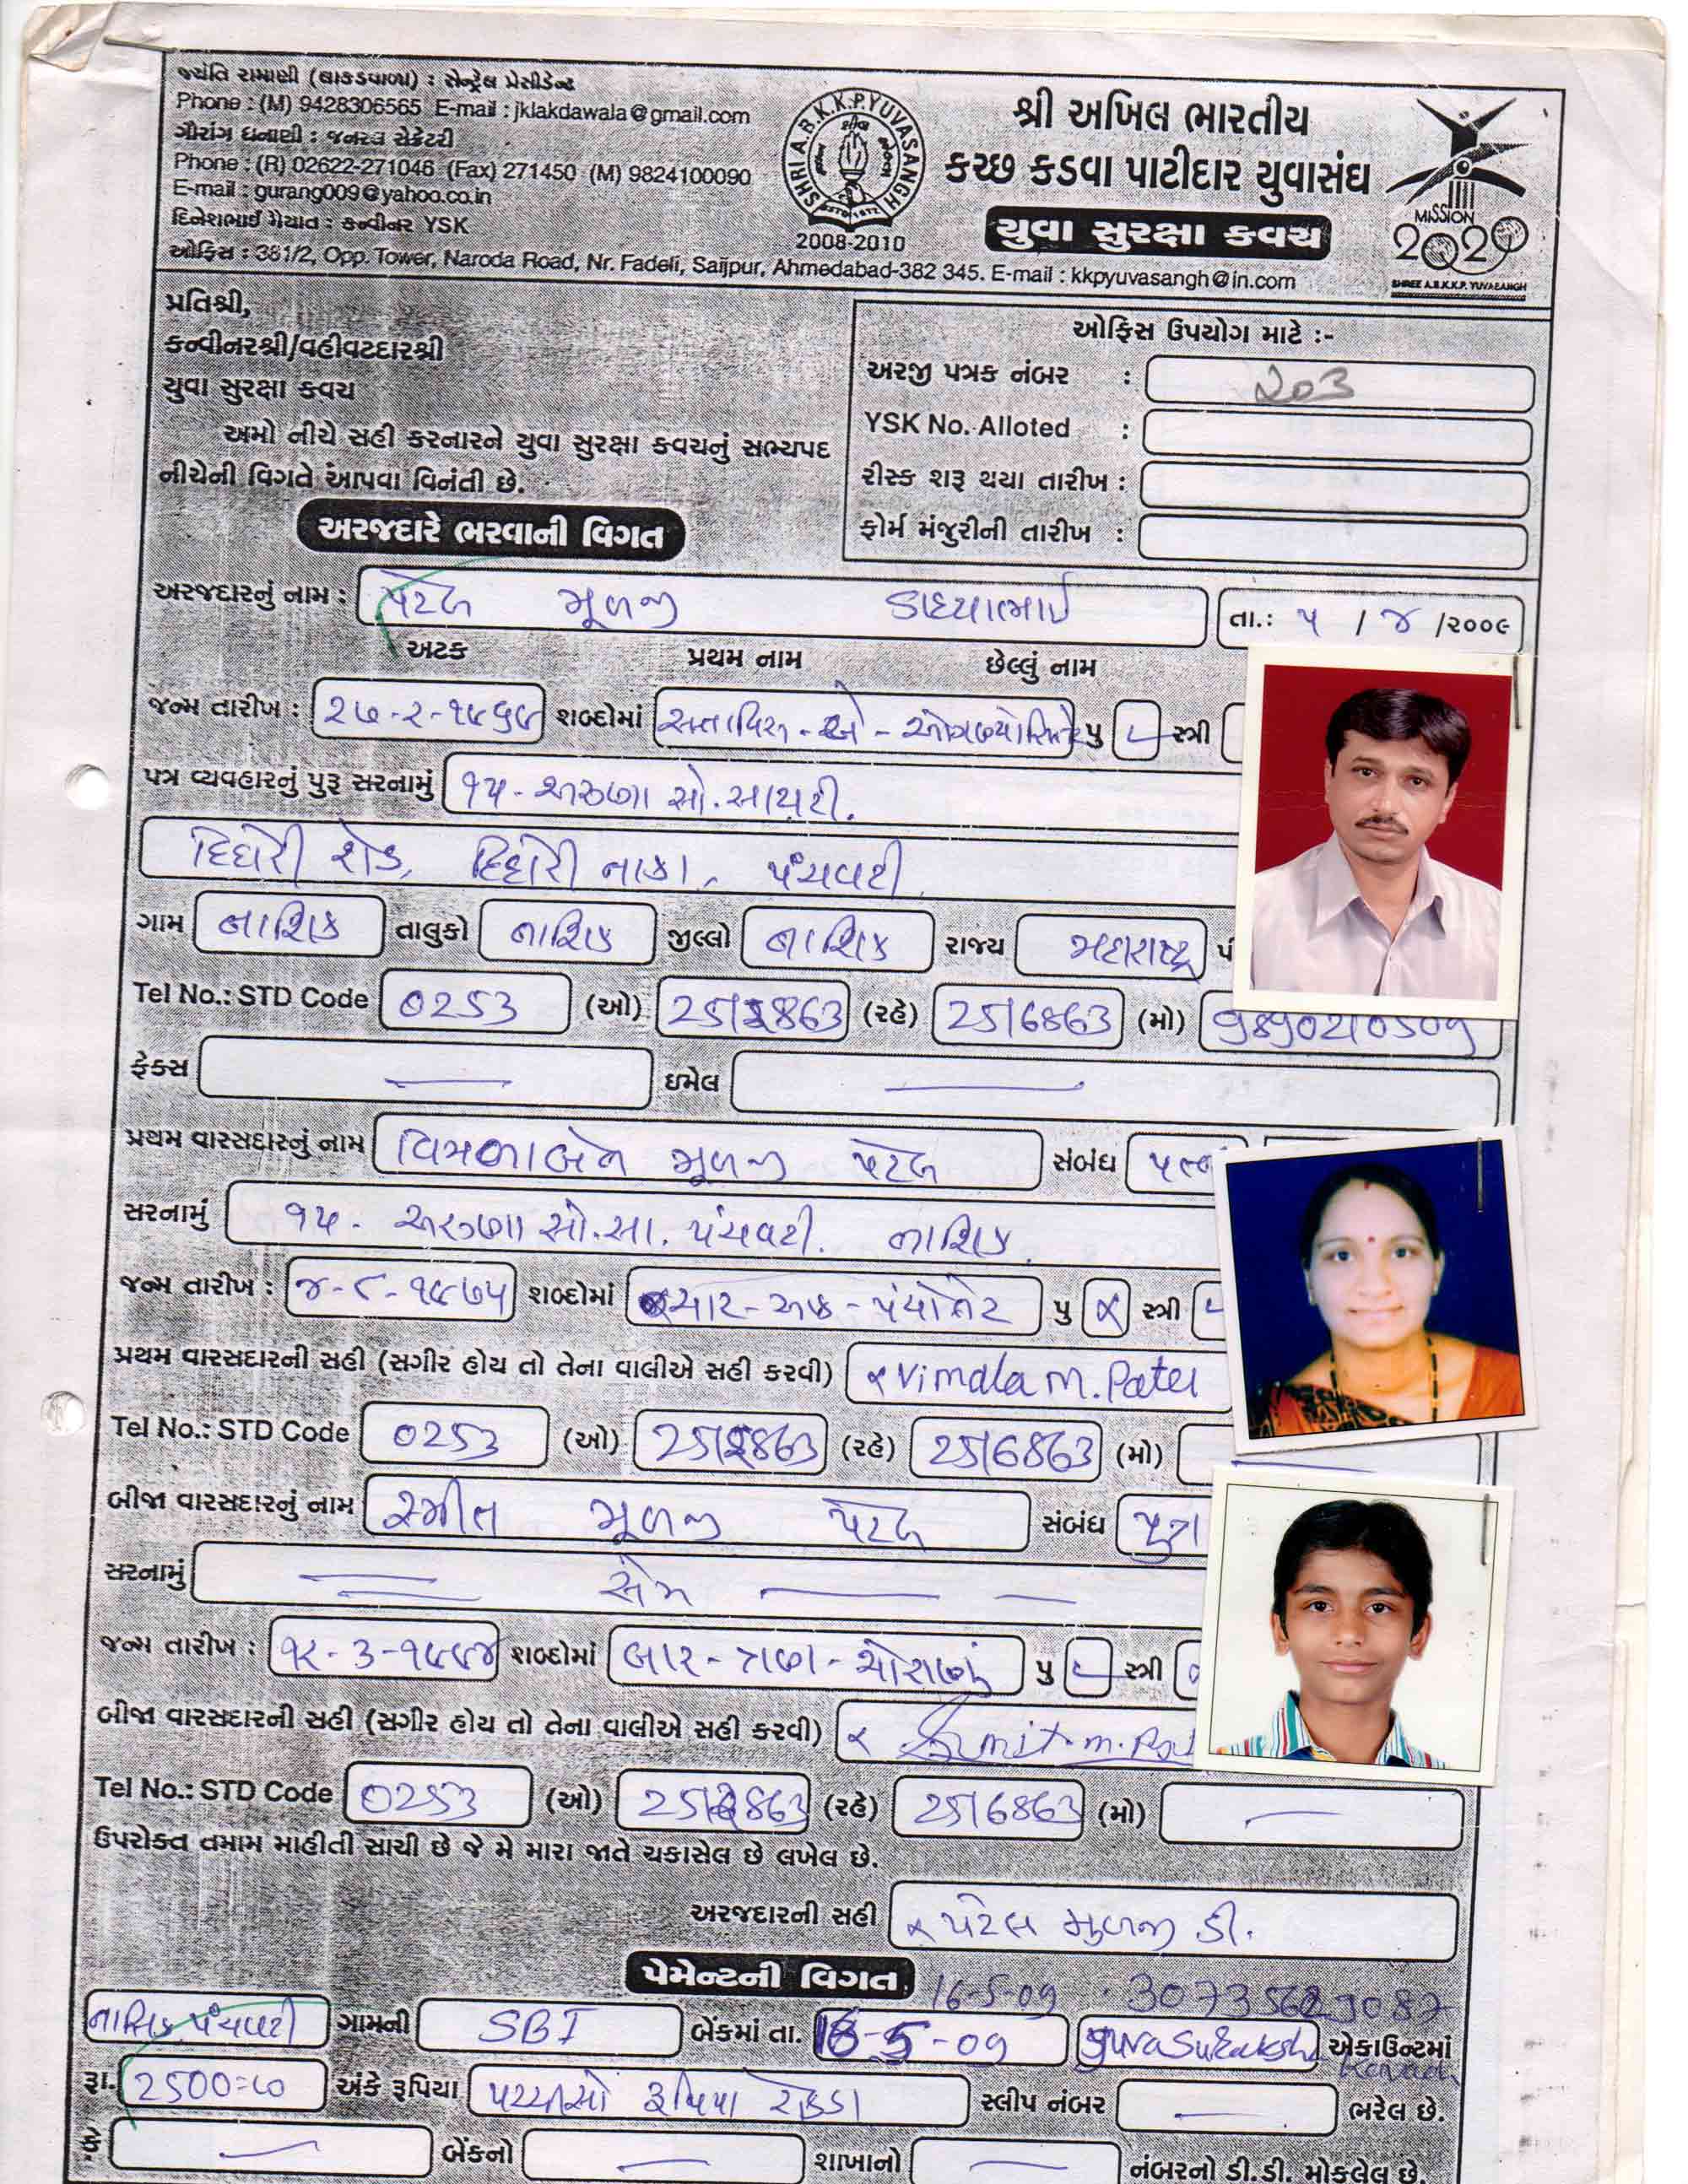 જ્યંતિ રામાણી (લાકડવાળા) : સેન્ટ્રેલ પ્રેસીડેન્ટ
Phone : (M) 9428306565 E-mail : jklakdawala@gmail.com
ગૌરાંગ ધનાણી : જનરલ સેક્રેટરી
Phone : (R) 02622-271046 (Fax) 271450 (M) 9824100090
E-mail : gurang009@yahoo.co.in
દિનેશભાઈ મેયાત : કન્વીનર YSK
ઓફિસ : 381/2, Opp. Tower, Naroda Road, Nr. Fadeli, Saijpur, Ahmedabad-382 345. E-mail : kkpyuvasangh@in.com
SHRI A.B.K.K.P. YUVASANGH
ESTD 1972
2008-2010
શ્રી અખિલ ભારતીય
કચ્છ કડવા પાટીદાર યુવાસંઘ
યુવા સુરક્ષા કવચ
MISSION
2020
SHREE A.B.K.K.P. YUVASANGH
પ્રતિશ્રી,
કન્વીનરશ્રી/વહીવટદારશ્રી
યુવા સુરક્ષા કવચ
અમો નીચે સહી કરનારને યુવા સુરક્ષા કવચનું સભ્યપદ
નીચેની વિગતે આપવા વિનંતી છે.
ઓફિસ ઉપયોગ માટે :-
અરજી પત્રક નંબર : ૨૦૩
YSK No. Alloted :
રીસ્ક શરૂ થયા તારીખ :
ફોર્મ મંજુરીની તારીખ :
અરજદારે ભરવાની વિગત
અરજદારનું નામ : પટેલ મૂળજી ડાહ્યાભાઈ તા.: ૫ / ૪ /૨૦૦૯
અટક પ્રથમ નામ છેલ્લું નામ
જન્મ તારીખ : ૨૭-૨-૧૯૬૯ શબ્દોમાં સત્તાવિસ - બે - પુ સ્ત્રી
પત્ર વ્યવહારનું પુરૂ સરનામું ૧૫- અરુણા સો.સાયટી.
દિંડોરી રોડ, દિંડોરી નાકા, પંચવટી
ગામ નાશિક તાલુકો નાશિક જીલ્લો નાશિક રાજ્ય મહારાષ્ટ્ર
Tel No.: STD Code 0253 (ઓ) (રહે) 2516863 (મો) 9890210509
ફેક્સ — ઇમેલ —
પ્રથમ વારસદારનું નામ વિમળાબેન મૂળજી પટેલ સંબંધ
સરનામું ૧૫- અરુણા સો.સા. પંચવટી. નાશિક
જન્મ તારીખ : ૪-૮-૧૯૭૫ શબ્દોમાં ચાર-આઠ-પંચોતેર પુ x સ્ત્રી
પ્રથમ વારસદારની સહી (સગીર હોય તો તેના વાલીએ સહી કરવી) x Vimala m. Patel
Tel No.: STD Code 0253 (ઓ) (રહે) 2516863 (મો) —
બીજા વારસદારનું નામ સ્મીત મૂળજી પટેલ સંબંધ પુત્ર
સરનામું — સેમ — —
જન્મ તારીખ : ૧૨-૩-૧૯૯૪ શબ્દોમાં બાર-ત્રણ-ચોરાણું પુ સ્ત્રી
બીજા વારસદારની સહી (સગીર હોય તો તેના વાલીએ સહી કરવી) x Smit. m.
Tel No.: STD Code 0253 (ઓ) (રહે) 2516863 (મો) —
ઉપરોક્ત તમામ માહીતી સાચી છે જે મે મારા જાતે ચકાસેલ છે લખેલ છે.
અરજદારની સહી x પટેલ મુળજી ડી.
પેમેન્ટની વિગત 16-5-09
નાસિક પંચવટી ગામની SBI બેંકમાં તા. 16-5-09 Yuva Suraksha Kavach એકાઉન્ટમાં
રૂા. 2500=00 અંકે રૂપિયા પચ્ચીસો રૂપિયા રોકડા સ્લીપ નંબર — ભરેલ છે.
— બેંકનો — શાખાનો — નંબરનો ડી.ડી. મોકલેલ છે.